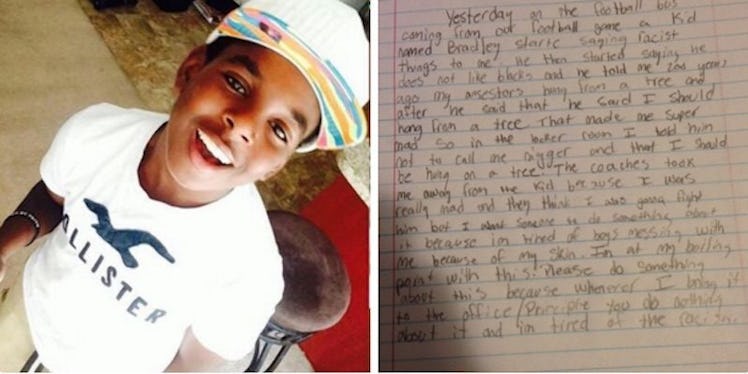 HOLLISTER
Yesterday on the football bus
coming from our football game a kid
named Bradley starte saying racist
things to me. He then started saying he
does not like blacks and he told me 200 years
ago my ansestors hung from a tree and
after he said that he said I should
hang from a tree. That made me super
mad so in the locker room I told him
not to call me nigger and that I should
be hung on a tree. The coaches took
me away from the kid because I was
really mad and they think I was gonna fight
him but I want someone to do something about
it because im tired of boys messing with
me because of my skin. Im at my boiling
point with this. Please do something
about this because whenever I bring it
to the office/Principle you do nothing
about it and im tired of the racism.